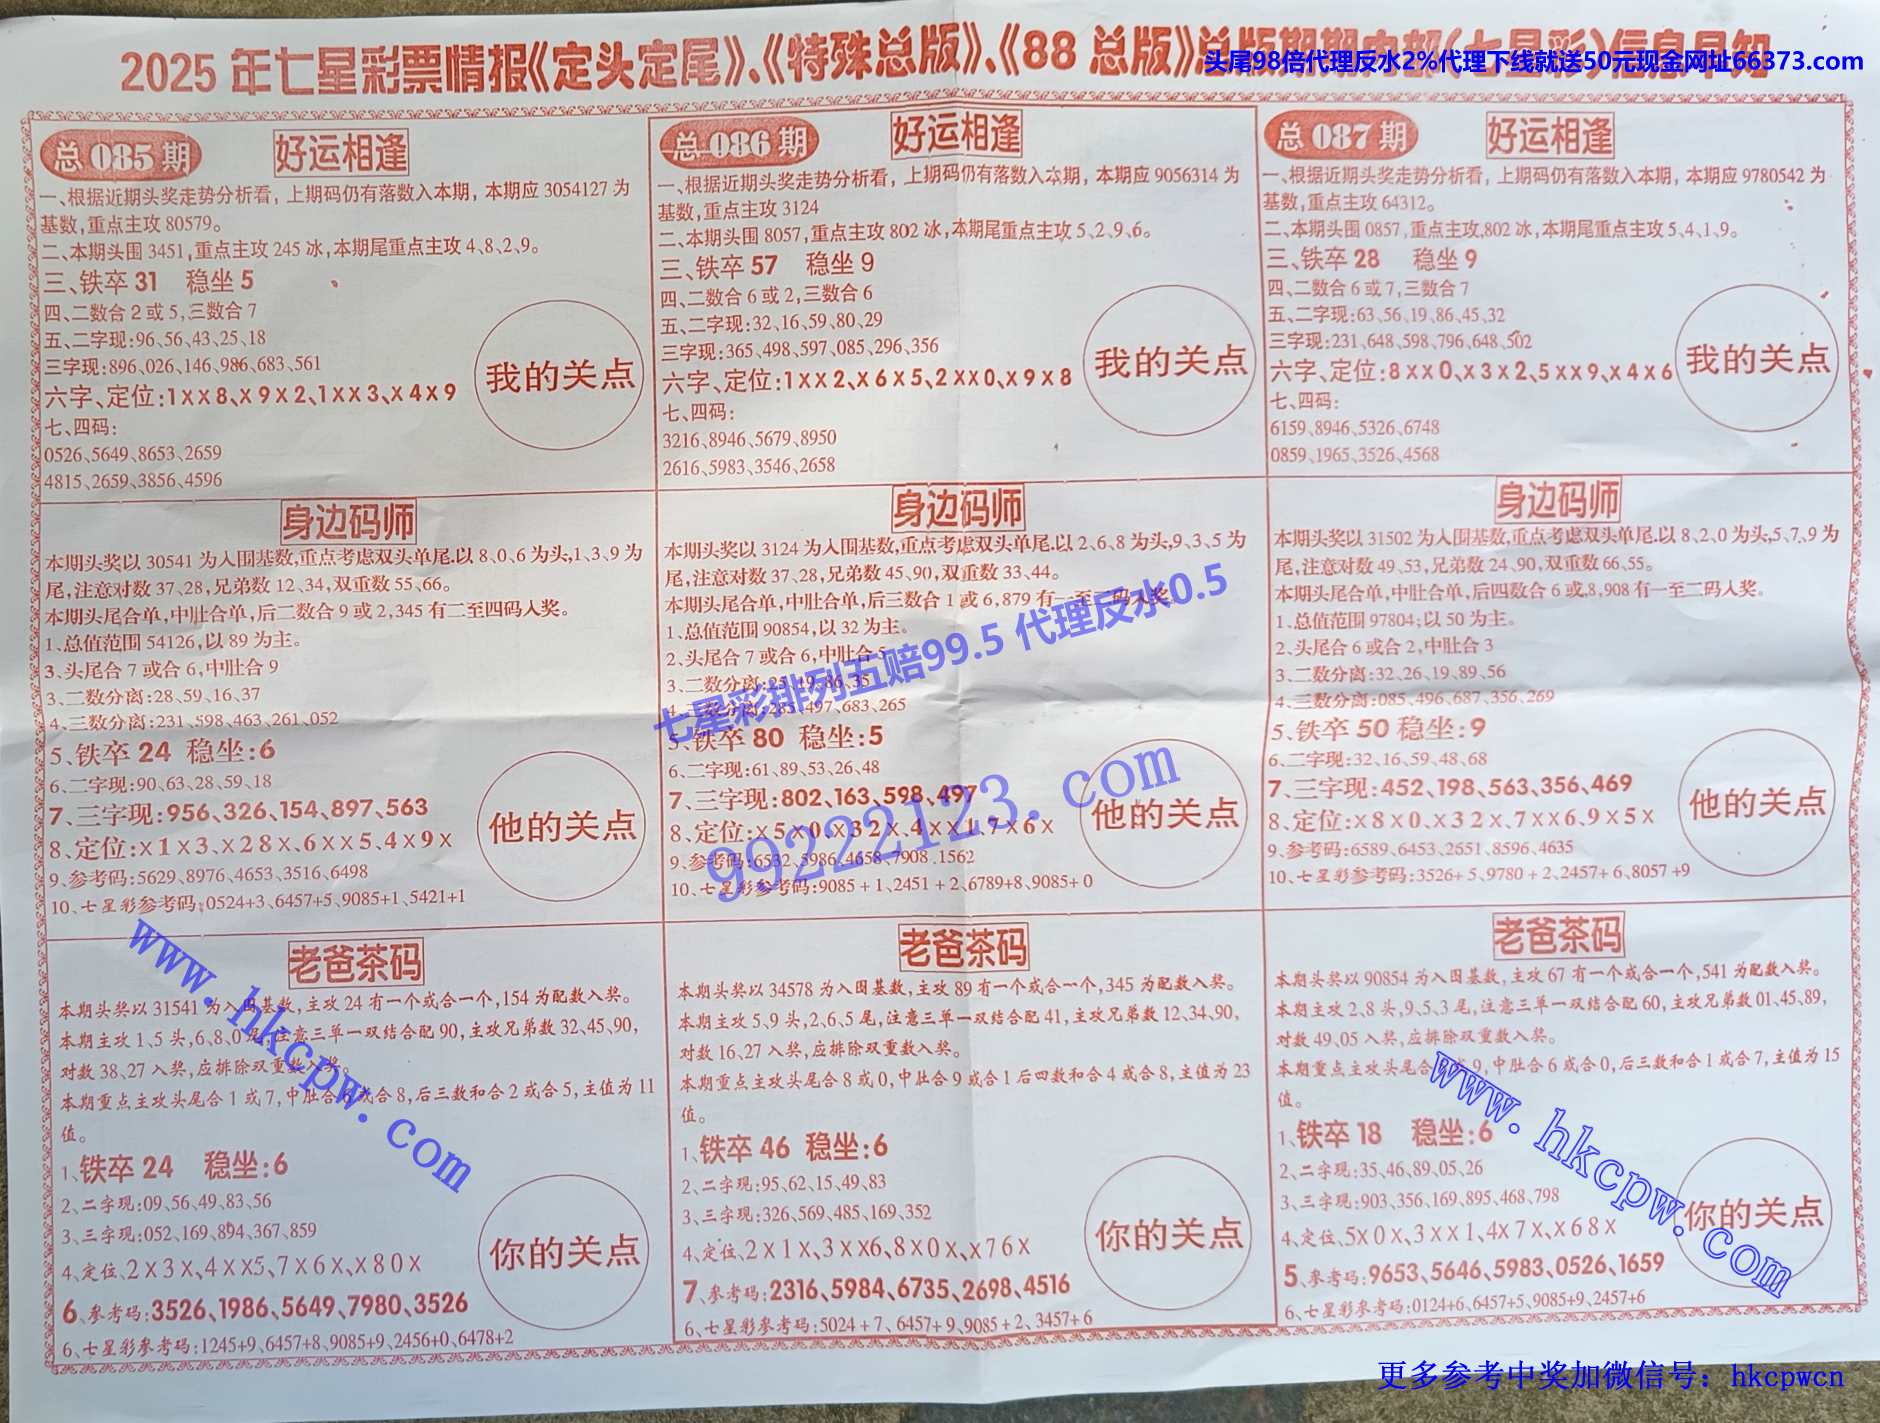 2025年七星彩票情报《定头定尾》、《特殊总版》、《88总版》总版期期
头尾98倍代理反水2%代理下线就送50元现金网址66373.com
总085期 好运相逢
一、根据近期头奖走势分析看，上期码仍有落数入本期，本期应3054127为
基数,重点主攻80579。
二、本期头围3451,重点主攻245冰,本期尾重点主攻4、8、2、9。
三、铁卒31 稳坐5
四、二数合2或5,三数合7
五、二字现:96、56、43、25、18
三字现:896、026、146、986、683、561
六字、定位:1XX8、X9X2、1XX3、X4X9
七、四码:
0526、5649、8653、2659
4815、2659、3856、4596
我的关点
身边码师
本期头奖以30541为入围基数,重点考虑双头单尾.以8、0、6为头,1、3、9为
尾,注意对数37、28,兄弟数12、34,双重数55、66。
本期头尾合单,中肚合单,后二数合9或2,345有二至四码入奖。
1、总值范围54126,以89为主。
3、头尾合7或合6,中肚合9
3、二数分离:28、59、16、37
4、三数分离:231、598、463、261、052
5、铁卒24 稳坐:6
6、二字现:90、63、28、59、18
7、三字现:956、326、154、897、563
8、定位:X1X3、X28X、6XX5、4X9X
9、参考码:5629、8976、4653、3516、6498
10、七星彩参考码:0524+3、6457+5、9085+1、5421+1
他的关点
老爸茶码
本期头奖以31541为入围基数,主攻24有一个或合一个,154为配数入奖。
本期主攻1、5头,6、8、0尾,注意三单一双结合配90,主攻兄弟数32、45、90,
对数38、27入奖,应排除双重数入奖。
本期重点主攻头尾合1或7,中肚合6或合8,后三数和合2或合5,主值为11
值。
1、铁卒24 稳坐:6
2、二字现:09、56、49、83、56
3、三字现:052、169、894、367、859
4、定位、2X3X、4XX5、7X6X、X80X
6、参考码:3526、1986、5649、7980、3526
6、七星彩参考码:1245+9、6457+8、9085+9、2456+0、6478+2
你的关点
总086期 好运相逢
一、根据近期头奖走势分析看，上期码仍有落数入本期，本期应9056314为
基数,重点主攻3124
二、本期头围8057,重点主攻802冰,本期尾重点主攻5、2、9、6。
三、铁卒57 稳坐9
四、二数合6或2,三数合6
五、二字现:32、16、59、80、29
三字现:365、498、597、085、296、356
六字、定位:1XX2、X6X5、2XX0、X9X8
七、四码:
3216、8946、5679、8950
2616、5983、3546、2658
我的关点
身边码师
本期头奖以3124为入围基数,重点考虑双头单尾.以2、6、8为头,9、3、5为
尾,注意对数37、28,兄弟数45、90,双重数33、44。
本期头尾合单,中肚合单,后三数合1或6,879有一至二码入奖。
1、总值范围90854,以32为主。
2、头尾合7或合6,中肚合5
3、二数分离:25、19、86、35
4、三数分离:285、497、683、265
5、铁卒80 稳坐:5
6、二字现:61、89、53、26、48
7、三字现:802、163、598、497
8、定位:X5X0、X32X、4XX1、7X6X
9、参考码:6532、5986、4658、7908、1562
10、七星彩参考码:9085+1、2451+2、6789+8、9085+0
他的关点
老爸茶码
本期头奖以34578为入围基数,主攻89有一个或合一个,345为配数入奖。
本期主攻5、9头,2、6、5尾,注意三单一双结合配41,主攻兄弟数12、34、90,
对数16、27入奖,应排除双重数入奖。
本期重点主攻头尾合8或0,中肚合9或合1后四数和合4或合8,主值为23
值。
1、铁卒46 稳坐:6
2、二字现:95、62、15、49、83
3、三字现:326、569、485、169、352
4、定位、2X1X、3XX6、8X0X、X76X
7、参考码:2316、5984、6735、2698、4516
6、七星彩参考码:5024+7、6457+9、9085+2、3457+6
你的关点
总087期 好运相逢
一、根据近期头奖走势分析看，上期码仍有落数入本期，本期应9780542为
基数,重点主攻64312。
二、本期头围0857,重点主攻,802冰,本期尾重点主攻5、4、1、9。
三、铁卒28 稳坐9
四、二数合6或7,三数合7
五、二字现:63、56、19、86、45、32
三字现:231、648、598、796、648、502
六字、定位:8XX0、X3X2、5XX9、X4X6
七、四码:
6159、8946、5326、6748
0859、1965、3526、4568
我的关点
身边码师
本期头奖以31502为入围基数,重点考虑双头单尾.以8、2、0为头,5、7、9为
尾,注意对数49、53,兄弟数24、90,双重数66、55。
本期头尾合单,中肚合单,后四数合6或,8,908有一至二码入奖。
1、总值范围97804;以50为主。
2、头尾合6或合2,中肚合3
3、二数分离:32、26、19、89、56
4、三数分离:085、496、687、356、269
5、铁卒50稳坐:9
6、二字现:32、16、59、48、68
7、三字现:452、198、563、356、469
8、定位:X8X0、X32X、7XX6、9X5X
9、参考码:6589、6453、2551、8596、4635
10、七星彩参考码:3526+5、9780+2、2457+6、8057+9
他的关点
老爸茶码
本期头奖以90854为入围基数,主攻67有一个或合一个,541为配数入奖。
本期主攻2、8头,9、5、3尾,注意三单一双结合配60,主攻兄弟数01、45、89,
对数49、05入奖,应排除双重数入奖。
本期重点主攻头尾合 9,中肚合6或合0,后三数和合1或合7,主值为15
值。
1、铁卒18 稳坐:6
2、二字现:35、46、89、05、26
3、三字现:903、356、169、895、468、798
4、定位、5X0X、3XX1、4X7X、X68X
5、参考码:9653、5646、5983、0526、1659
6、七星彩参考码:0124+6、6457+5、9085+9、2457+6
你的关点
七星彩排列五赔99.5 代理反水0.5
99222123.com
www.hkcpw.com
www.hkcpw.com
更多参考中奖加微信号：hkcpwcn